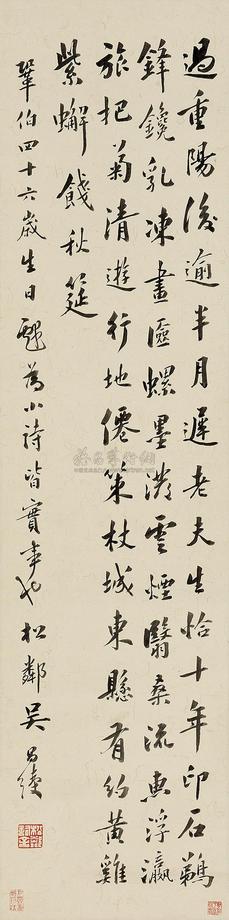 過重陽後逾半月遲老夫生恰十年印石鵜
鋒鑱乳凍畫區螺墨潑雲煙翳桑流惠浮瀛
旅把菊清遊行地僊策杖城東懸有約黃雞
紫蠏餞秋筵
鞏伯四十六歲生日戲為小詩皆實事也松鄰吳昌綬